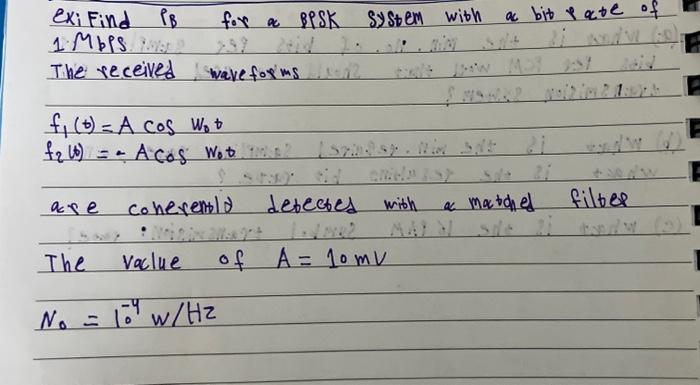 ex: Find PB for a BPSK system with a bit rate of
1 Mbps
The received waveforms
f₁(t) = A cos W₀t
f₂(t) = - A cos W₀t
are coherently detected with a matched filter
The value of A = 10 mV
N₀ = 10⁻⁴ w/Hz